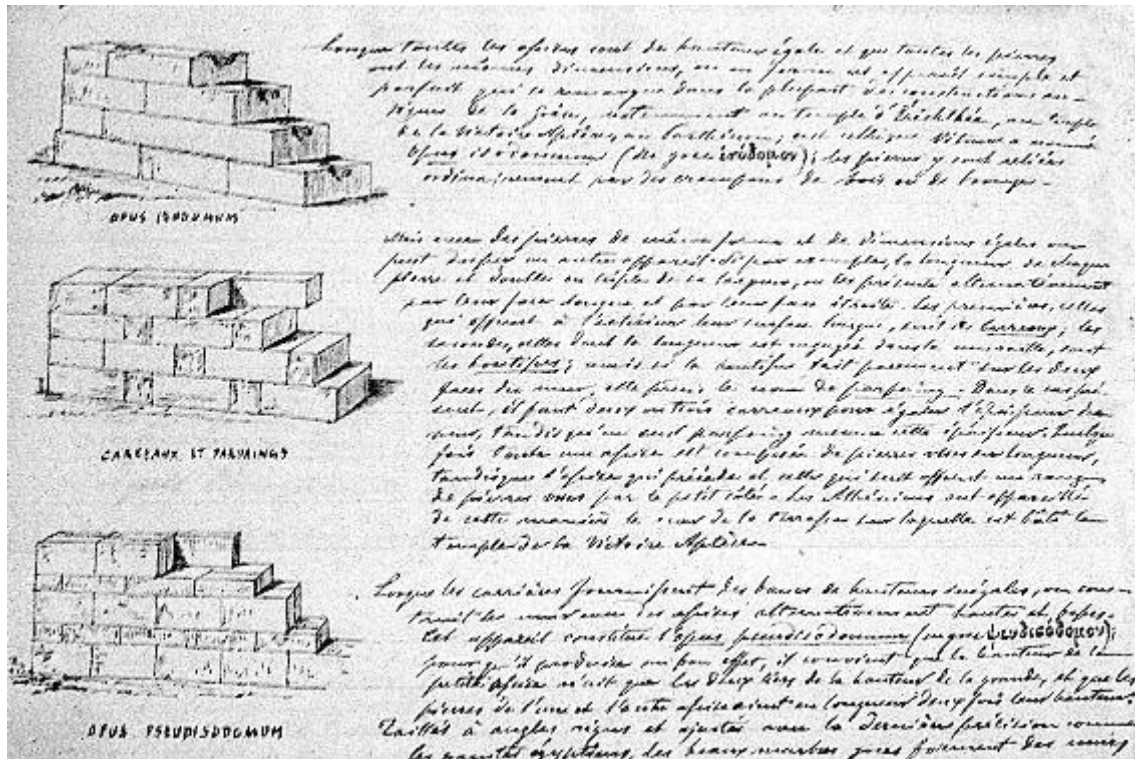 Lorsque toutes les assises sont de hauteur égale et que toutes les pierres
ont les mêmes dimensions, on en forme un appareil simple et
parfait qui se remarque dans la plupart des constructions an-
tiques de la Grèce, notamment au temple d'Erechthée, au temple
de la Victoire Aptère, au Parthénon; cet Vitruve a nommé
opus isodomum (du grec ἰσόδομον); les pierres y sont reliées
ordinairement par des crampons de bois ou de bronze.
OPUS ISODOMUM
Mais avec des pierres de même forme et de dimensions égales on
peut disposer un autre appareil. Si par exemple, la longueur de chaque
pierre est double ou triple de sa largeur, on les présente alternativement
par leur face longue et par leur face étroite. Les premières, celles
qui offrent à l'extérieur leur surface longue, sont des carreaux; les
secondes, celles dont la longueur est engagée dans la muraille, sont
les boutisses; mais si la boutisse fait parement sur les deux
faces du mur, elle prend le nom de parpaing. Dans le cas
il faut deux ou trois carreaux pour égaler l'épaisseur du
mur, tandis qu'un seul parpaing mesure cette épaisseur. Quelque
fois toute une assise est composée de pierres vues en longueur,
tandis que l'assise qui précède et celle qui suit offrent une rangée
de pierres vues par le petit côté. Les Athéniens ont appareillé
de cette manière le mur de la terrasse sur laquelle est bâti le
temple de la Victoire Aptère.
CARREAUX ET PARPAINGS
Lorsque les carrières fournissent des bancs de hauteurs inégales, on cons-
truit les murs avec des assises alternativement hautes et basses.
Cet appareil constitue l'opus pseudisodomum (en grec ψευδισόδομον);
pour qu'il produise un bon effet, il convient que la hauteur de la
petite assise n'ait que les deux tiers de la hauteur de la grande, et que les
pierres de l'une et l'autre assise aient en longueur deux fois leur hauteur.
Taillés à angles vigus et ajustés avec la dernière précision comme
les granites égyptiens, les beaux marbres grecs forment des murs
OPUS PSEUDISODOMUM